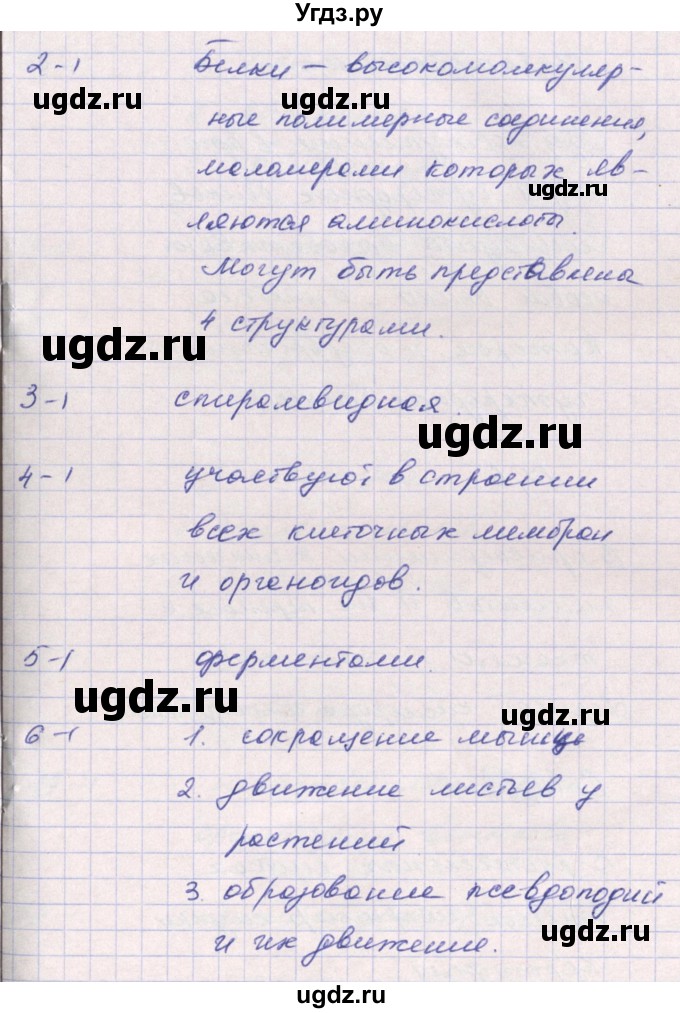 Угдз.ру
2-1 Белки — высокомолекуляр-
ные полимерные соединения,
маломерами которых яв-
ляются аминокислоты.
Могут быть представлены
4 структурами.
3-1 спиралевидная.
4-1 участвуют в строении
всех клеточных мембран
и органоидов.
5-1 ферментами.
6-1 1. сокращение мышц
2. движение листьев у
растений
3. образование псевдоподий
и их движение.
ugdz.ru
ugdz.ru
ugdz.ru
ugdz.ru
ugdz.ru
ugdz.ru
ugdz.ru
ugdz.ru
ugdz.ru
ugdz.ru
ugdz.ru
ugdz.ru